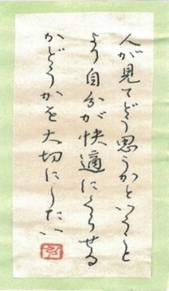 人が見てどう思うかということ
より自分が快適にくらせる
かどうかを大切にしたい